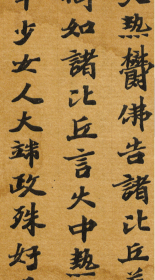 熱欝佛告諸比丘
何如諸比丘言火中熱
少女人大端政殊好